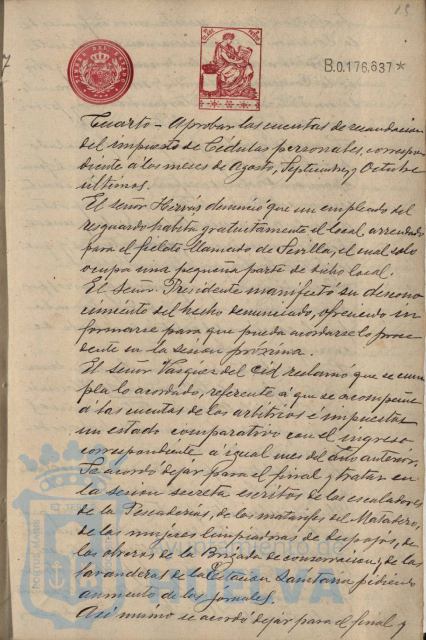 15
B.0.176.637*
Cuarto - Aprobar las cuentas de recaudación
del impuesto de Cédulas personales, correspon-
diente á los meses de Agosto, Septiembre y Octubre
últimos.
El señor Hierás denunció que un empleado del
resguardo habita gratuitamente el local arrendado
para el fielato llamado de Sevilla, el cual solo
ocupa una pequeña parte de dicho local.
El Señor Presidente manifestó su descono-
cimiento del hecho denunciado, ofreciendo in-
formarse para que pueda acordarse lo proce-
dente en la sesión próxima.
El señor Vazquez del Cid reclamó que se cum-
pla lo acordado, referente á que se acompañe
a las cuentas de los arbitrios é impuestos
un estado comparativo con el ingreso
correspondiente a igual mes del año anterior.
Se acordó dejar para el final y tratar en
la sesión secreta escritos de los escaladores
de la Pescadería, de los matarifes del Matadero,
de las mujeres limpiadoras de despojos, de
los obreros de la Brigada de conservación y de las
lavanderas de la Estación Sanitaria pidiendo
aumento de los jornales.
Asi mismo se acordó dejar para el final y